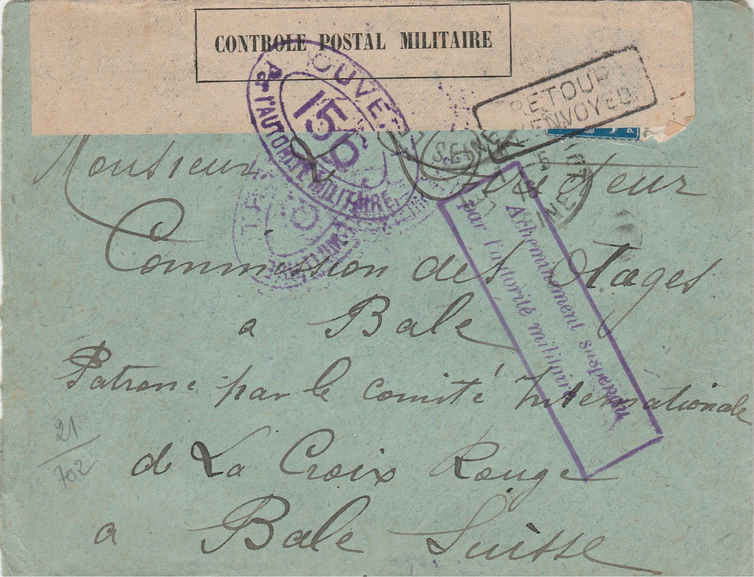 CONTROLE POSTAL MILITAIRE
OUVERT
PAR l'AUTORITÉ MILITAIRE
156
RETOUR
A L'ENVOYEUR
SEINE
Acheminement suspendu
par l'autorité militaire
Monsieur le Directeur
Commission des Otages
a Bale
Patrone par le comité Internationale
de La Croix Rouge
a Bale Suisse
21
702